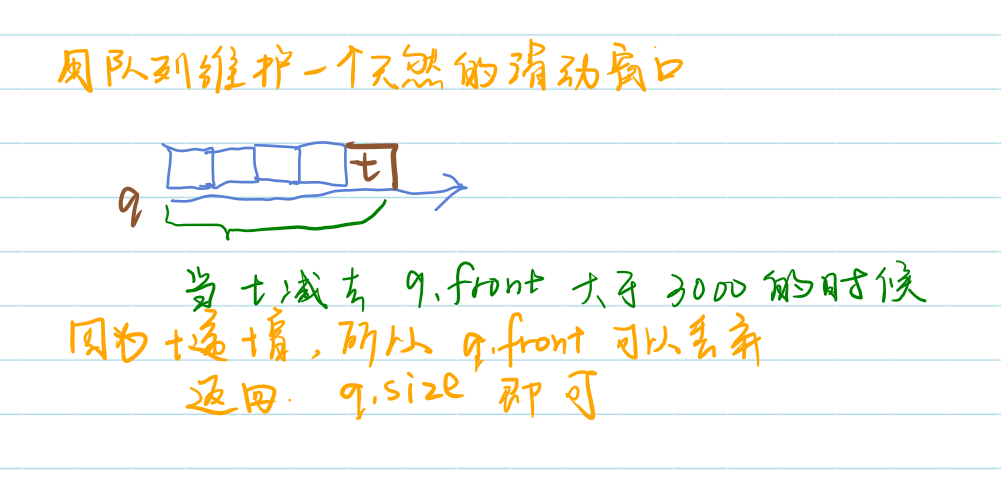 用队列维护一个天然的滑动窗口
t
q
当t减去 q.front 大于 3000 的时候
因为t递增,所以 q.front 可以丢弃
返回. q.size 即可